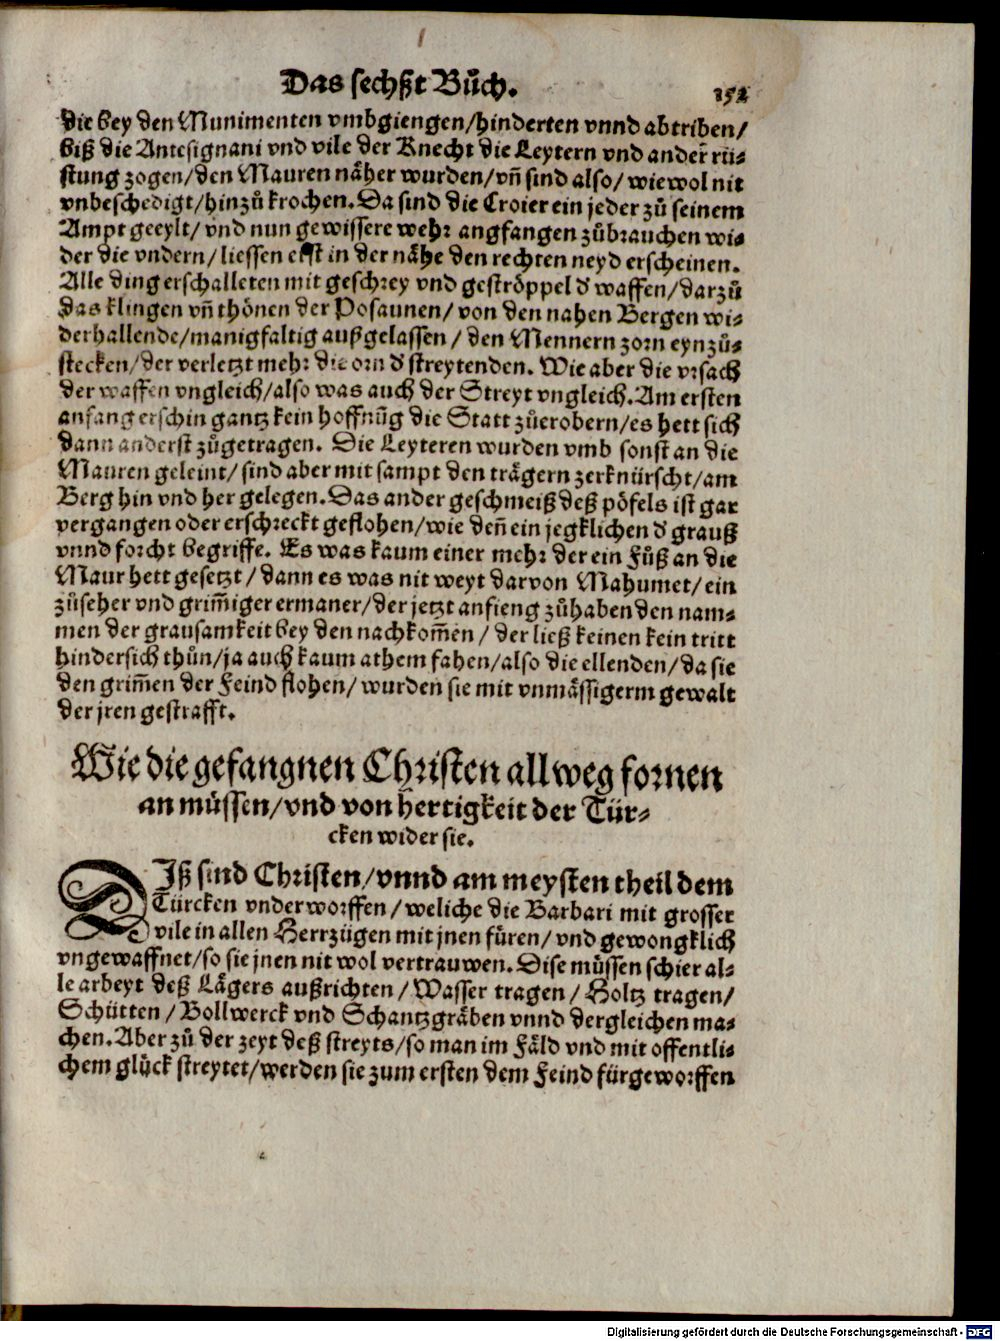 Das sechßt Bůch.
152
die bey den Munimenten vmbgiengen/hinderten vnnd abtriben/
biß die Antesignani vnd vile der Knecht die Leytern vnd ander rü-
stung zogen/den Mauren näher wurden/vñ sind also/wiewol nit
vnbeschedigt/hinzů krochen. Da sind die Croier ein jeder zů seinem
Ampt geeylt/vnd nun gewissere wehr angfangen zůbrauchen wi-
der die vndern/liessen erst in der nähe den rechten neyd erscheinen.
Alle ding erschalleten mit geschrey vnd geströppel d̓ waffen/darzů
das klingen vñ thönen der Posaunen/von den nahen Bergen wi-
derhallende/manigfaltig außgelassen/den Mennern zorn eynzů-
stecken/der verletzt mehr die orn d̓ streytenden. Wie aber die vrsach
der waffen vngleich/also was auch der Streyt vngleich. Am ersten
anfang erschin gantz kein hoffnũg die Statt zůerobern/es hett sich
dann anderst zůgetragen. Die Leyteren wurden vmb sonst an die
Mauren geleint/sind aber mit sampt den trägern zerknürscht/am
Berg hin vnd her gelegen. Das ander geschmeiß deß pöfels ist gar
vergangen oder erschreckt geflohen/wie deñ ein jegklichen d̓ grauß
vnnd forcht begriffe. Es was kaum einer mehr der ein Fůß an die
Maur hett gesetzt/dann es was nit weyt darvon Mahumet/ein
zůseher vnd grim̃iger ermaner/der jetzt anfieng zůhaben den nam-
men der grausamkeit bey den nachkom̃en/der ließ keinen kein tritt
hindersich thůn/ja auch kaum athem fahen/also die ellenden/da sie
den grim̃en der Feind flohen/wurden sie mit vnmässigerm gewalt
der jren gestrafft.
Wie die gefangnen Christen allweg fornen
an müssen/vnd von hertigkeit der Tür-
cken wider sie.
DIß sind Christen/vnnd am meysten theil dem
Türcken vnderworffen/weliche die Barbari mit grosser
vile in allen Herrzügen mit jnen füren/vnd gewongklich
vngewaffnet/so sie jnen nit wol vertrauwen. Dise müssen schier al-
le arbeyt deß Lägers außrichten/Wasser tragen/Holtz tragen/
Schütten/Bollwerck vnd Schantzgräben vnnd dergleichen ma-
chen. Aber zů der zeyt deß streyts/so man im Fäld vnd mit offentli-
chem glück streytet/werden sie zum ersten dem Feind fürgeworffen
Digitalisierung gefördert durch die Deutsche Forschungsgemeinschaft - DFG